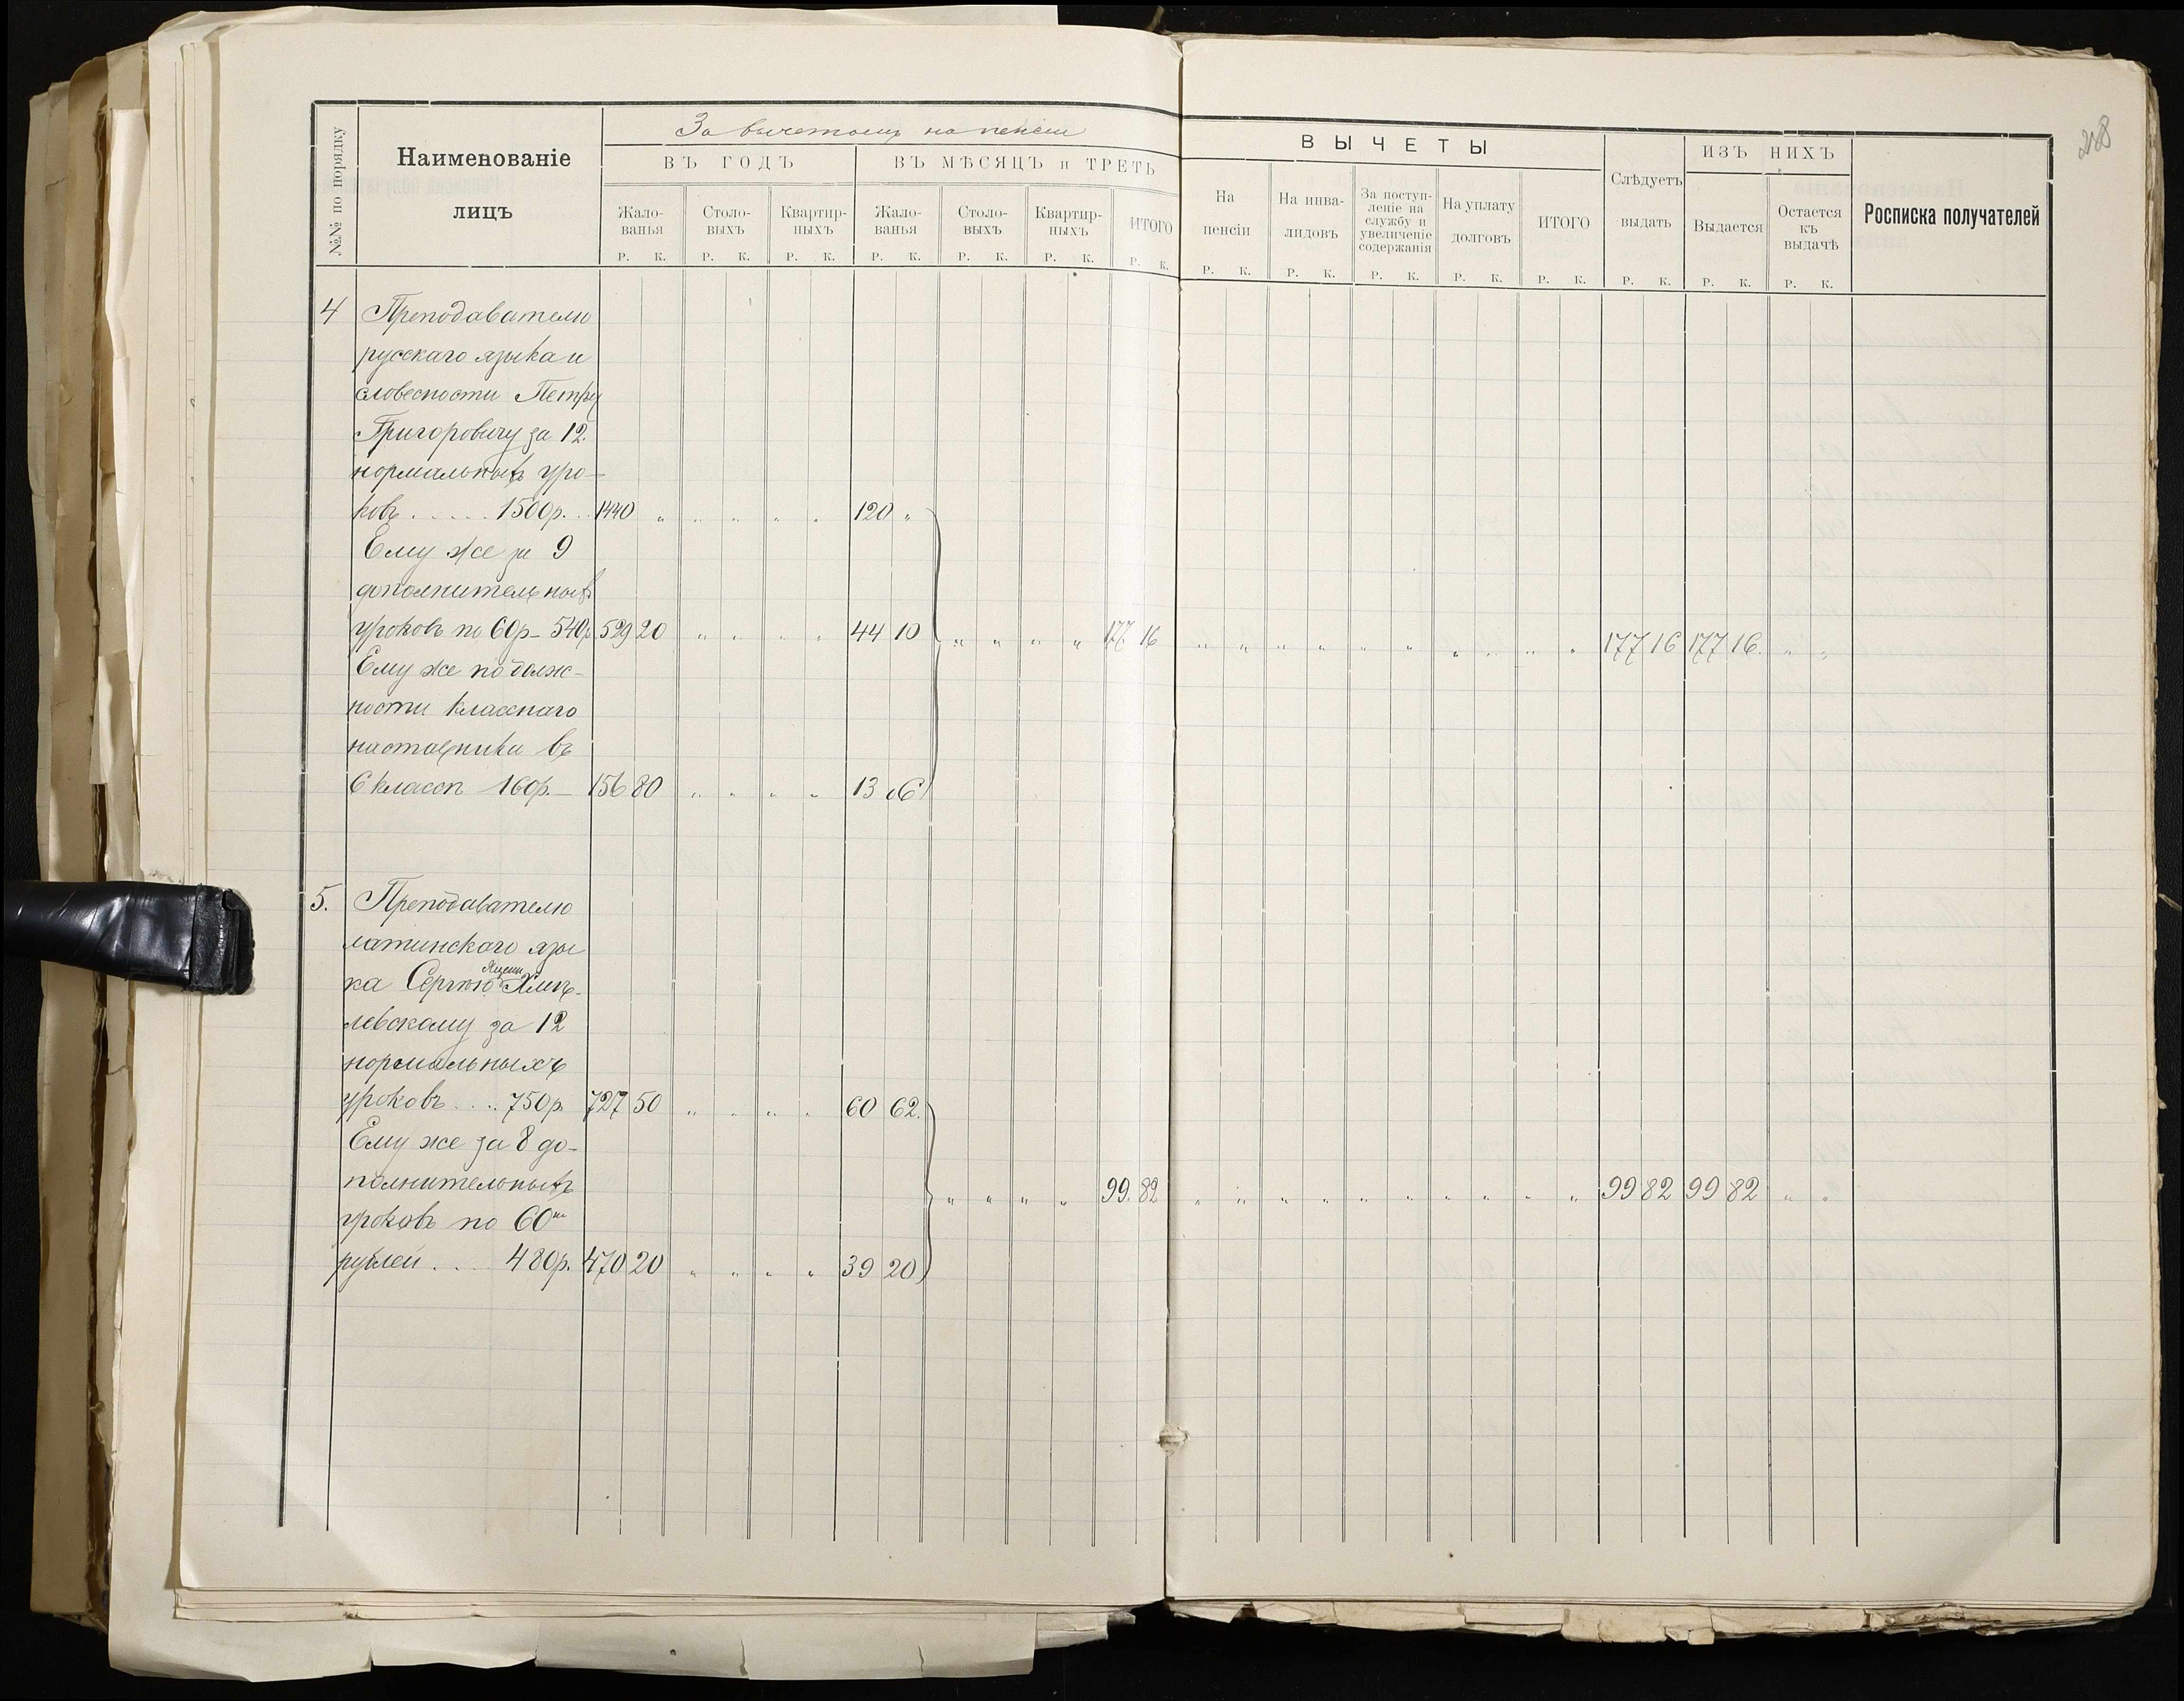 За вычетомъ на пенсіи
№№ по порядку
Наименованіе
лицъ
ВЪ ГОДЪ
ВЪ МѢСЯЦЪ и ТРЕТЬ
Жало-
ванья
Столо-
выхъ
Квартир-
ныхъ
Жало-
ванья
Столо-
выхъ
Квартир-
ныхъ
ИТОГО
Р. К. Р. К. Р. К. Р. К. Р. К. Р. К. Р. К.
ВЫЧЕТЫ
На
пенсіи
На инва-
лидовъ
За поступ-
леніе на
службу и
увеличеніе
содержанія
На уплату
долговъ
ИТОГО
Слѣдуетъ
выдать
ИЗЪ НИХЪ
Выдается
Остается
къ
выдачѣ
Росписка получателей
Р. К. Р. К. Р. К. Р. К. Р. К. Р. К. Р. К. Р. К.
4 Преподавателю
русскаго языка и
словесности Петру
Григоровичу за 12
нормальныхъ уро-
ковъ ..... 1500р. .. 1440 " " " " " 120 "
Ему же за 9
дополнительныхъ
уроковъ по 60р – 540р 529 20 " " " " 44 10 " " " " 177 16 " " " " " " " " " " 177 16 177 16 " "
Ему же по долж-
ности класснаго
наставника въ
6 классѣ 160р. – 156 80 " " " " 13 06
5. Преподавателю
латинскаго язы
ка Сергѣю Хмѣ-
левскому за 12
нормальныхъ
уроковъ .... 750р. 727 50 " " " " 60 62.
Ему же за 8 до-
полнительныхъ " " " " 99. 82 " " " " " " " " " " 99 82 99 82 " "
уроковъ по 60ти
рублей .... 480р. 470 20 " " " " 39 20